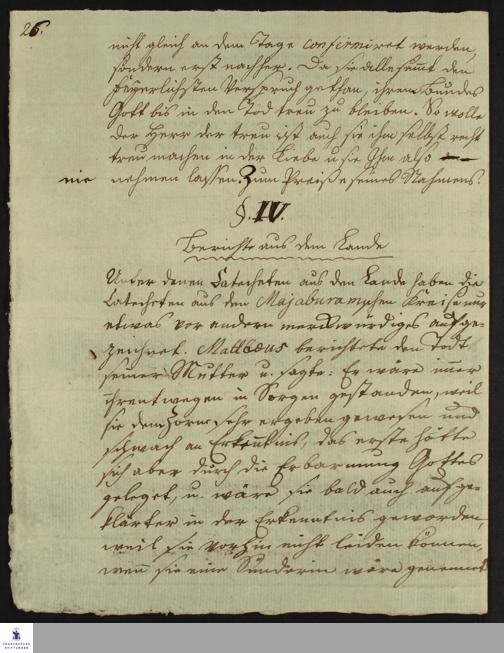 26.
nicht gleich an dem Tage confirmiret werden,
sondern erst nachher. Da sie alle samt den
feyerlichsten Verspruch gethan, ihrem Bundes
Gott bis in den Tod treu zu bleiben. So wolle
der Herr der treu ist auch sie ihm selbst recht
treu machen in der Liebe u sie Ihm also
nie nehmen lassen. Zum Preiße seines Nahmens.
§. IV.
Berichte aus dem Lande
Unter denen Catecheten aus dem Lande haben die
Catecheten aus dem Majaburamschen Kreise nur
etwas vor andern merckwürdiges aufge-
zeichnet. Matthæus berichtete den Todt
seiner Mutter u. sagte: Er wäre immer
ihrentwegen in Sorgen gestanden, weil
sie dem Zorne sehr ergeben gewesen und
schwach an Erkentnis, das erste hätte
sich aber durch die Erbarmung Gottes
geleget, u. wäre sie bald auch aufge-
klärter in der Erkenntnis geworden,
weil sie vorhin nicht leiden können,
wenn sie eine Sünderin wäre genennet
FRANCKESCHE
STIFTUNGEN